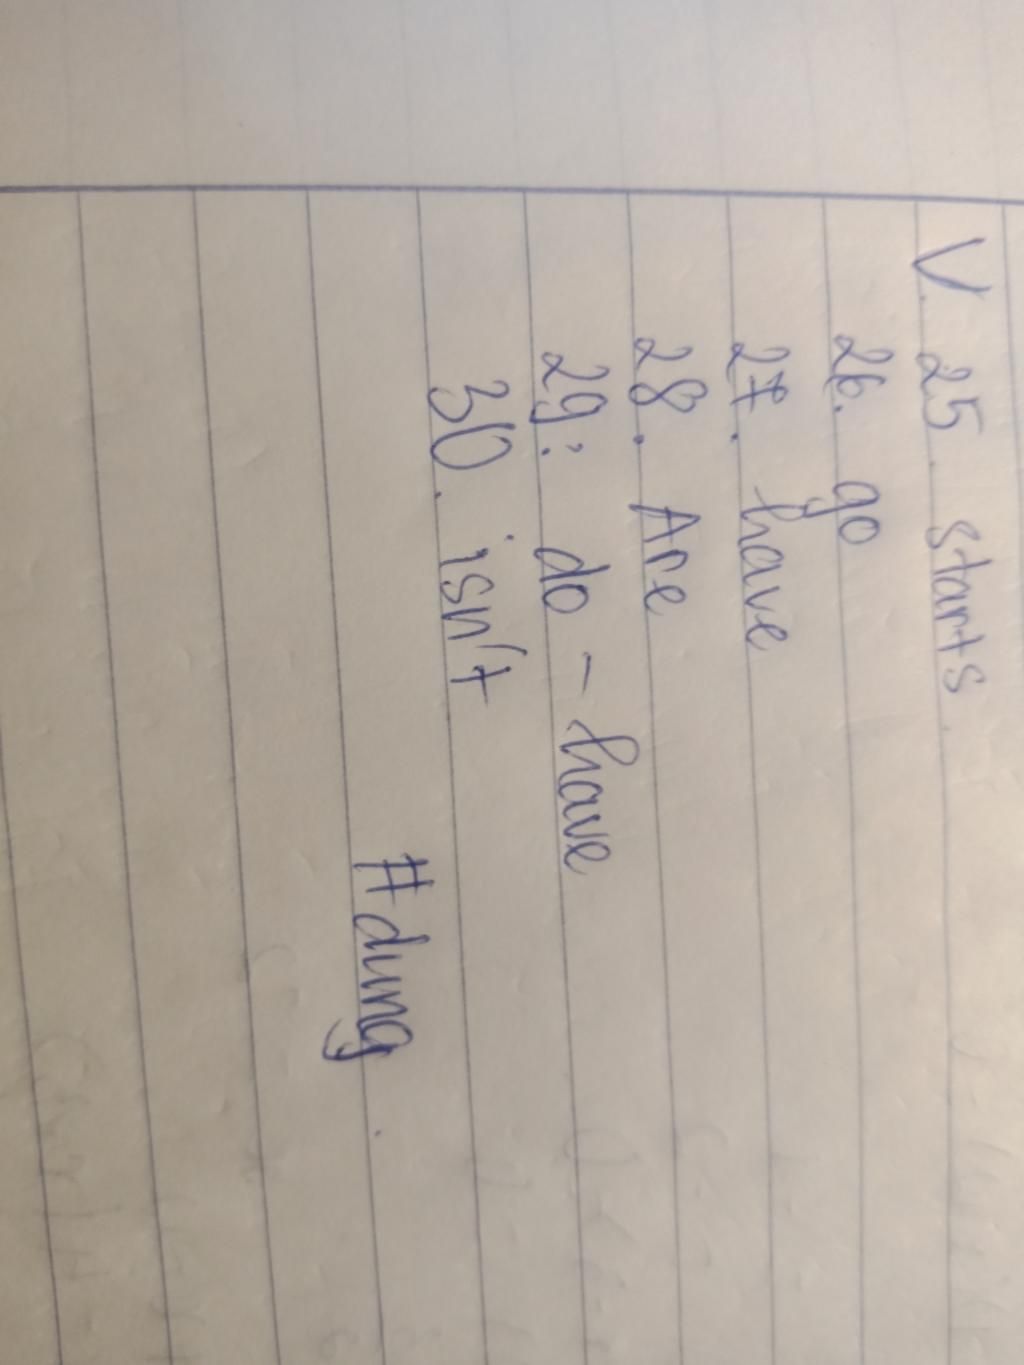 V. 25. starts.
26. go
27. have
28. Are
29: do - have
30. isn't
#dung.